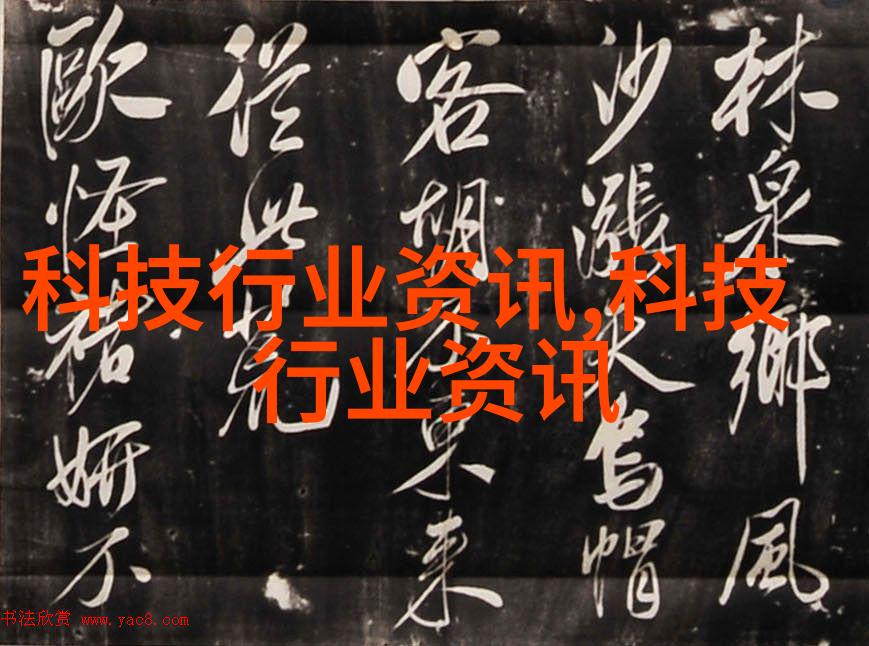 林泉鄉風
沙漲大烏帽
客胡不東來
從此
歐怪褚妍不
科技行业资讯,科技
行业资讯
书法欣赏 www.yac8.com